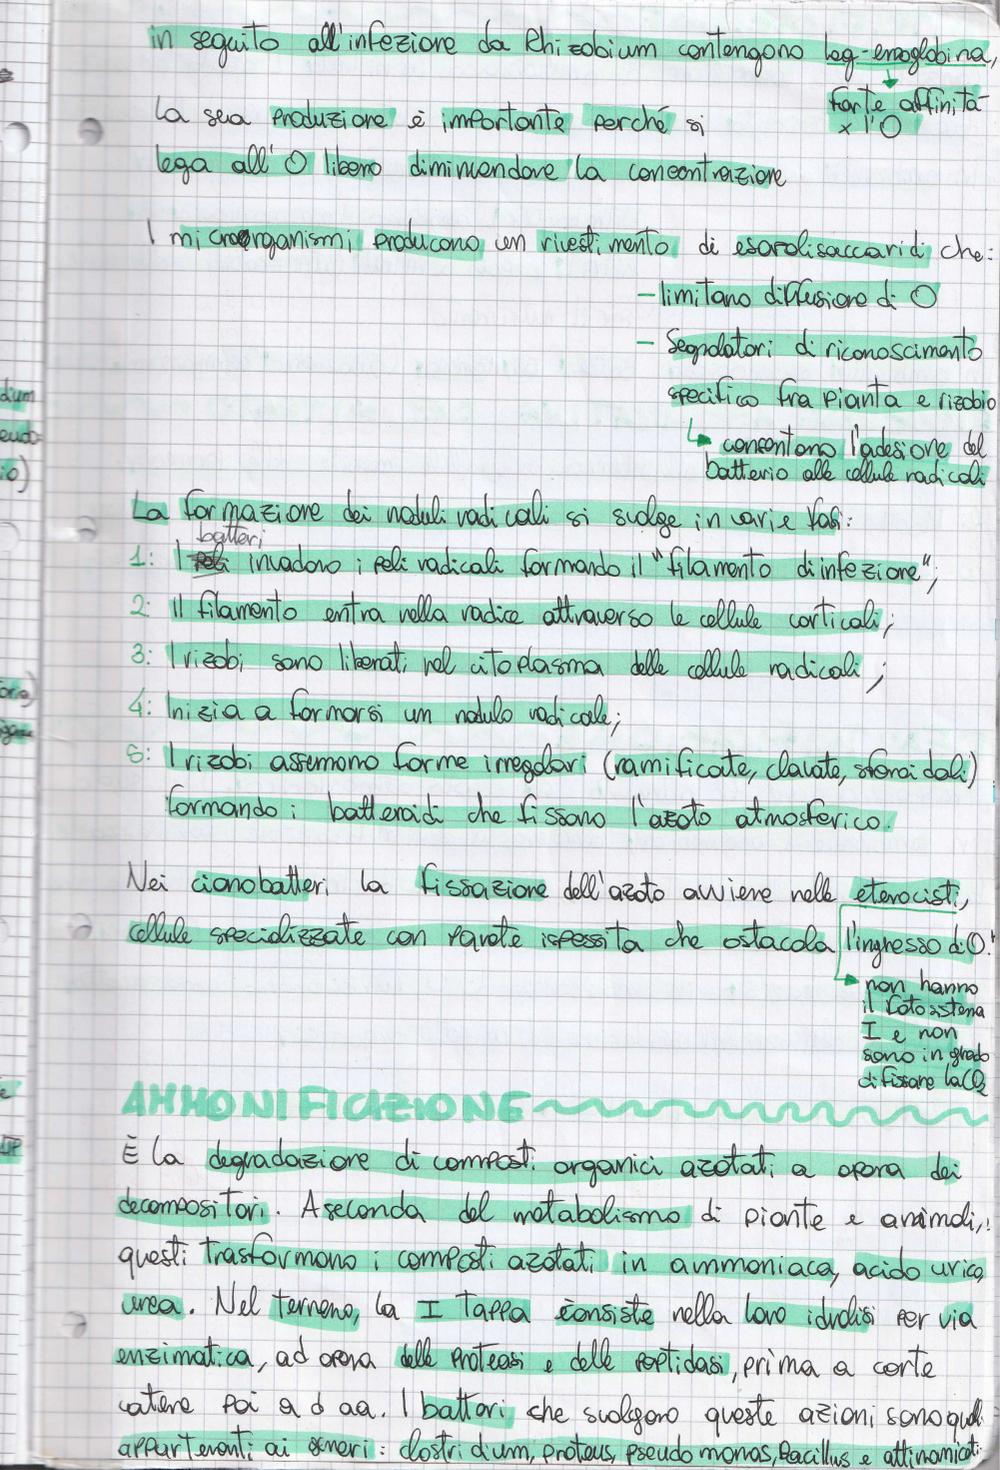 in seguito all'infezione da Rhizobium contengono leg-emoglobina,
forte affinità
x l'O
La sua produzione è importante perché si
lega all'O libero diminuendone la concentrazione
I microorganismi producono un rivestimento di esapolisaccaridi che:
- limitano diffusione di O
- Segnalatori di riconoscimento
specifico fra pianta e rizobio
consentono l'adesione del
batterio alle cellule radicali
dium
eudo-
io)
La formazione dei noduli radicali si svolge in varie fasi:
batteri
1: I peli invadono i peli radicali formando il "filamento di infezione";
2: il filamento entra nella radice attraverso le cellule corticali;
3: I rizobi sono liberati nel citoplasma delle cellule radicali;
4: Inizia a formarsi un nodulo radicale;
5: I rizobi assumono forme irregolari (ramificate, clavate, sferoidali)
formando i batteroidi che fissano l'azoto atmosferico.
Nei cianobatteri la fissazione dell'azoto avviene nelle eterocisti,
cellule specializzate con parete ispessita che ostacola l'ingresso di O.
non hanno
il fotosistema
I e non
sono in grado
di fissare la CO2
AMMONIFICAZIONE
È la degradazione di composti organici azotati a opera dei
decompositori. A seconda del metabolismo di piante e animali,
questi trasformano i composti azotati in ammoniaca, acido urico,
urea. Nel terreno, la I Tappa consiste nella loro idrolisi per via
enzimatica, ad opera delle proteasi e delle peptidasi, prima a corte
catene poi a d aa. I batteri che svolgono queste azioni sono quelli
appartenenti ai generi: clostridium, proteus, pseudomonas, Bacillus e attinomiceti